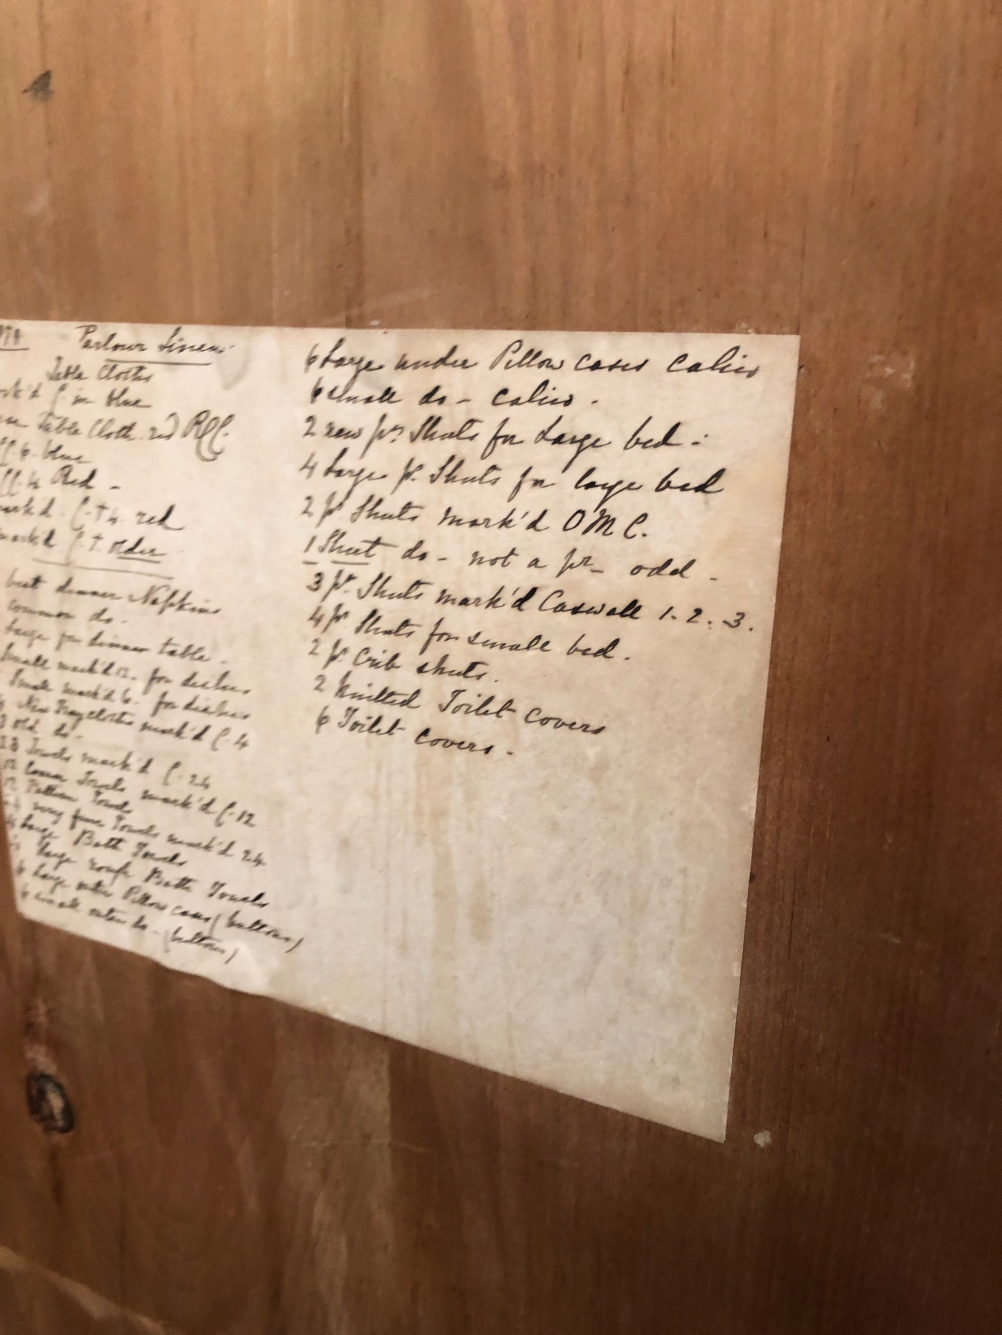 Parlour Linen
Table Cloths
mark'd C. in blue
Table Cloth red RCC.
blue
Red -
mark'd C. T 4. red
mark'd C. T. older
best dinner Napkins
common do.
large for dinner table -
Small mark'd 12. for dishes
Small mark'd 6. for dishes
New Traycloths mark'd C. 4
3 old do -
Towels mark'd C. 24
12 Towels mark'd C. 12
12 Towels
very fine Towels mark'd 24
large Bath Towels
large rough Bath Towels
6 large outer Pillow cases (buttons)
6 small outer do - (buttons)
6 Large under Pillow cases calico
6 Small do - calico -
2 new prs Sheets for Large bed -
4 Large pr. Sheets for large bed
2 pr Sheets mark'd O M C.
1 Sheet do - not a pr - odd -
3 pr. Sheets mark'd Caswall 1. 2. 3.
4 pr Sheets for small bed.
2 pr. Crib sheets.
2 Knitted Toilet Covers
6 Toilet Covers -